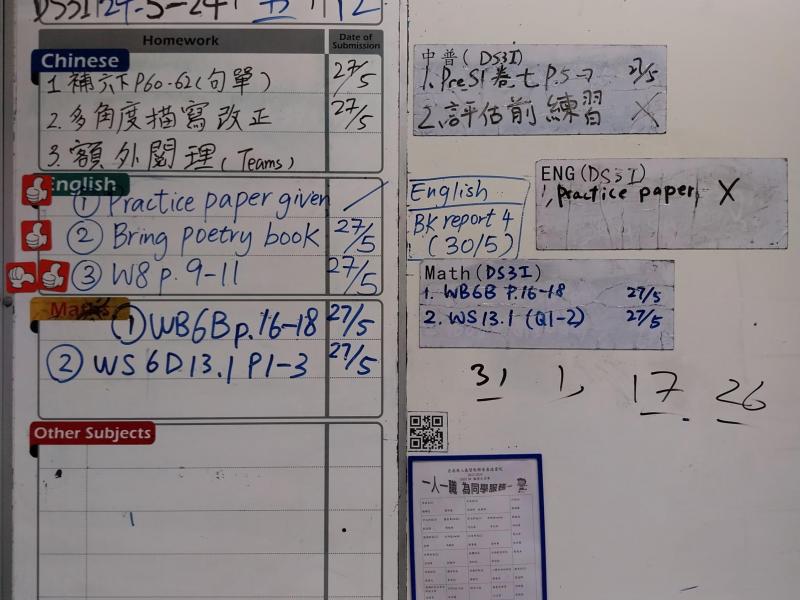 Homework
Date of Submission
Chinese
1. 補六下P60-62(句單) 27/5
2. 多角度描寫改正 27/5
3. 額外閱理(Teams)
English
① Practice paper given
② Bring poetry book 27/5
③ W8 p.9-11 27/5
Maths
① WB6B p.16-18 27/5
② WS 6D13.1 P1-3 27/5
Other Subjects
中普(DS3I)
1. PreS1卷七 P.5-7 27/5
2. 評估前練習 X
ENG(DS3I)
1. practice paper X
English
BK report 4
(30/5)
Math(DS3I)
1. WB6B P.16-18 27/5
2. WS13.1 (Q1-2) 27/5
31 1 17 26
一人一職 為同學服務